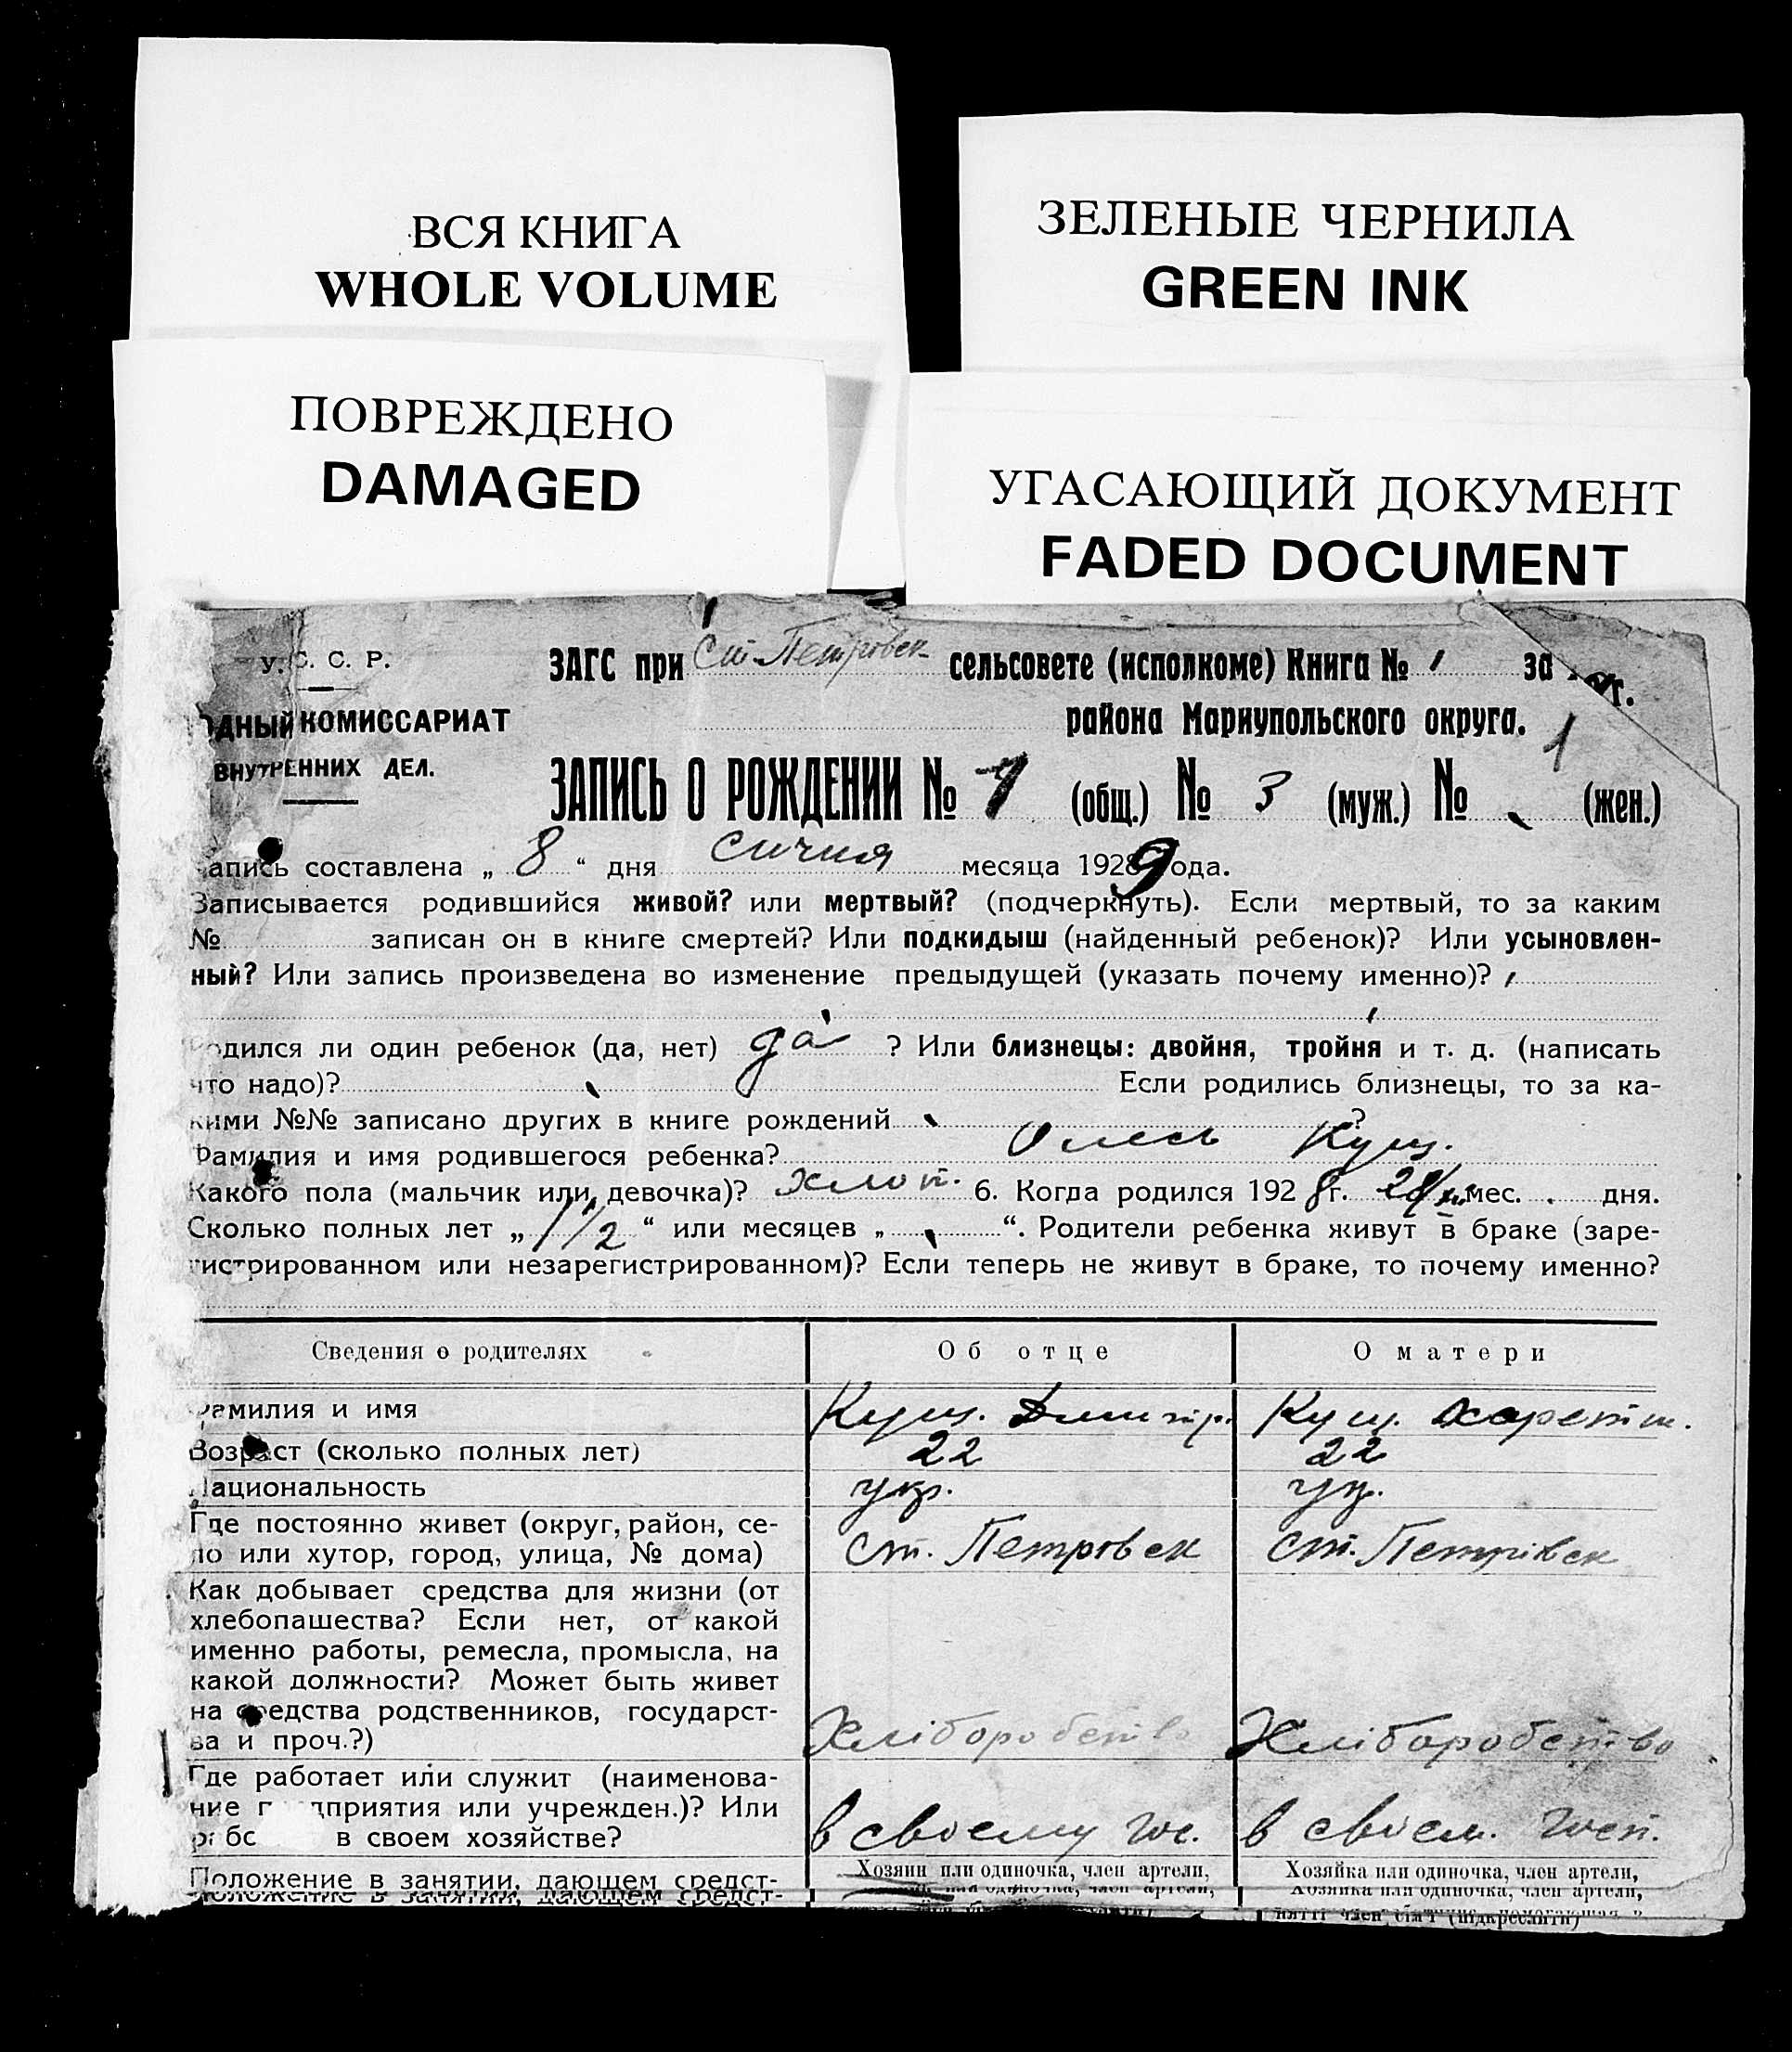 ВСЯ КНИГА
WHOLE VOLUME
ЗЕЛЕНЫЕ ЧЕРНИЛА
GREEN INK
ПОВРЕЖДЕНО
DAMAGED
УГАСАЮЩИЙ ДОКУМЕНТ
FADED DOCUMENT
У. С. С. Р.
ЗАГС при Ст-Петровск сельсовете (исполкоме) Книга № 1 за г.
ОДНЫЙ КОМИССАРИАТ
района Мариупольского округа.
1
ВНУТРЕННИХ ДЕЛ.
ЗАПИСЬ О РОЖДЕНИИ № (общ.) № 3 (муж.) № (жен.)
апись составлена „ 8 “ дня сичня месяца 1929 ода.
Записывается родившийся живой? или мертвый? (подчеркнуть). Если мертвый, то за каким
№ записан он в книге смертей? Или подкидыш (найденный ребенок)? Или усыновлен-
ный? Или запись произведена во изменение предыдущей (указать почему именно)?
одился ли один ребенок (да, нет) да ? Или близнецы: двойня, тройня и т. д. (написать
что надо)? Если родились близнецы, то за ка-
кими №№ записано других в книге рождений ?
Фамилия и имя родившегося ребенка? Олесь Кущ.
Какого пола (мальчик или девочка)? хлоп. 6. Когда родился 192 8 г. мес. дня.
Сколько полных лет „ “ или месяцев „ “. Родители ребенка живут в браке (заре-
гистрированном или незарегистрированном)? Если теперь не живут в браке, то почему именно?
Сведения о родителях Об отце О матери
Фамилия и имя Кущ. Дмитр. Кущ.
Возраст (сколько полных лет) 22 22
Национальность укр. ук.
Где постоянно живет (округ, район, се-
ло или хутор, город, улица, № дома) Ст. Петровск Ст. Петрівск
Как добывает средства для жизни (от
хлебопашества? Если нет, от какой
именно работы, ремесла, промысла, на
какой должности? Может быть живет
на средства родственников, государст-
ва и проч.?) Хліборобство Хліборобство
Где работает или служит (наименова-
ние предприятия или учрежден.)? Или
в своем хозяйстве? в своему гос. в своем. госп.
Положение в занятии, дающем средст- Хозяин или одиночка, член артели, Хозяйка или одиночка, член артели,